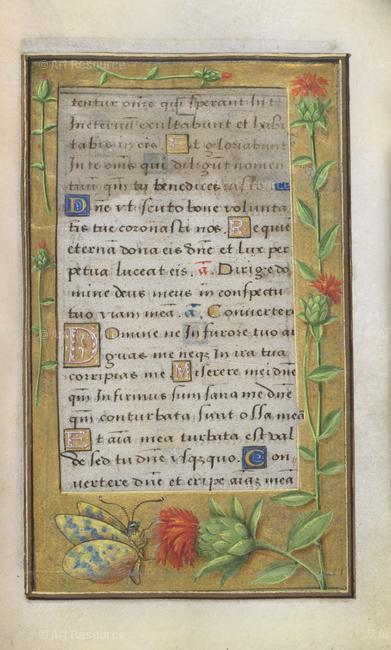 © Art Resource
tentur om̄e qui sperant in t
In eternū exultabunt et habi
tabis in eis. Et gloriabunt
In te om̄s qui diligūt nomen
tuū qm̄ tu benedices iusto.
Dn̄e vt scuto bone volunta
tis tue coronasti nos. Requie
eternā dona eis dn̄e et lux per
petua luceat eis. a. Dirige do
mine deus meus in conspectu
tuo viam meā. a. Conuerter
Domine ne In furore tuo ar
guas me neqz In ira tua
corripias me Miserere mei dn̄e
qm̄ Infirmus sum sana me dn̄e
qm̄ conturbata sunt ossa mea
Et aīa mea turbata est val
de sed tu dn̄e vsqzquo. Con
uertere dn̄e et eripe aīaz meā
© Art Resource
© Art Resource